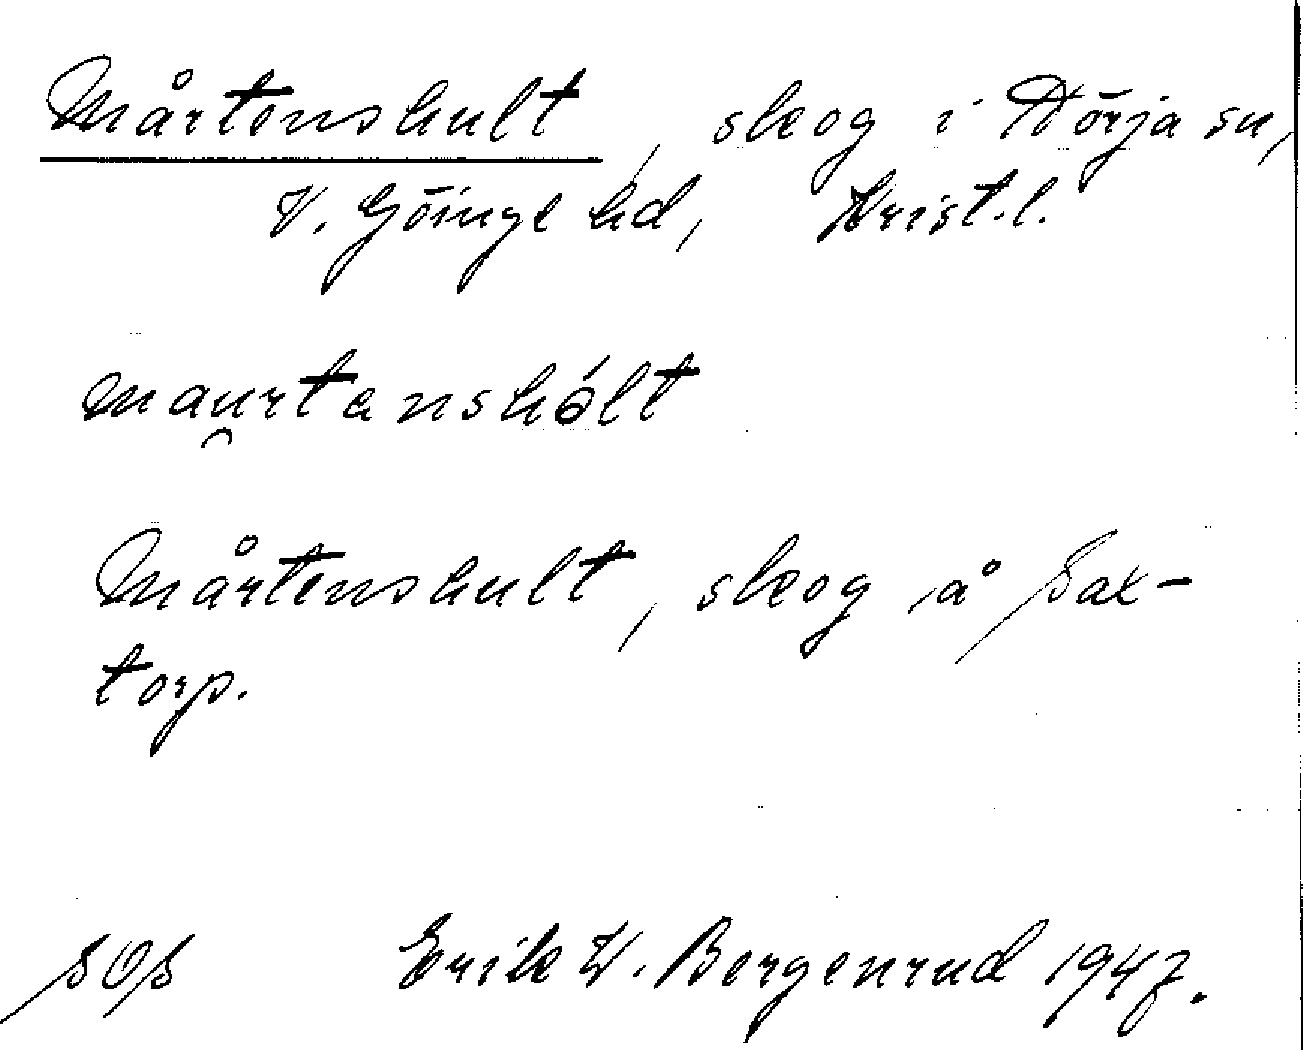 Mårtenshult, skog i Nörja sn,
V. Göinge hd, Krist.l.
mau̯rtanshólt
Mårtenshult, skog å Sax-
torp.
SOS Erik W. Bergenrud 1947.